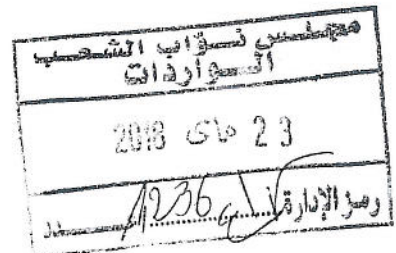 مجلس نواب الشعب
الواردات
23 ماي 2018
رمز الإدارة 1236 عدد